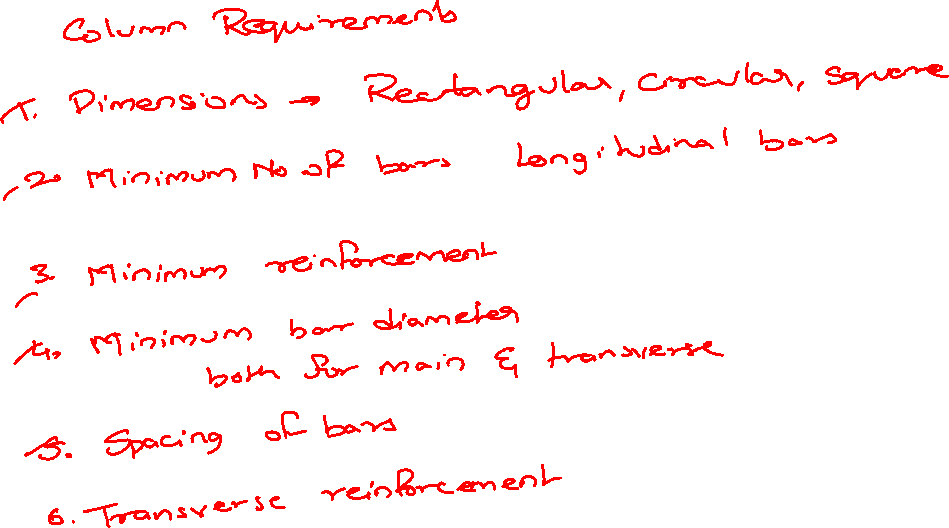 Column Requirements
1. Dimensions → Rectangular, Circular, Square
2. Minimum No of bars Longitudinal bars
3. Minimum reinforcement
4. Minimum bar diameter
both for main & transverse
5. Spacing of bars
6. Transverse reinforcement